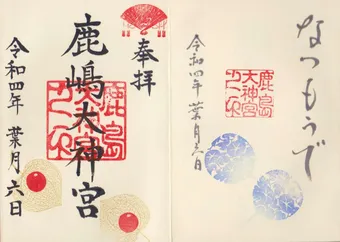 なつもうで
鹿島
大神宮
之印
令和四年 葉月六日
奉拝
鹿嶋大神宮
鹿島
令和四年 葉月 六日